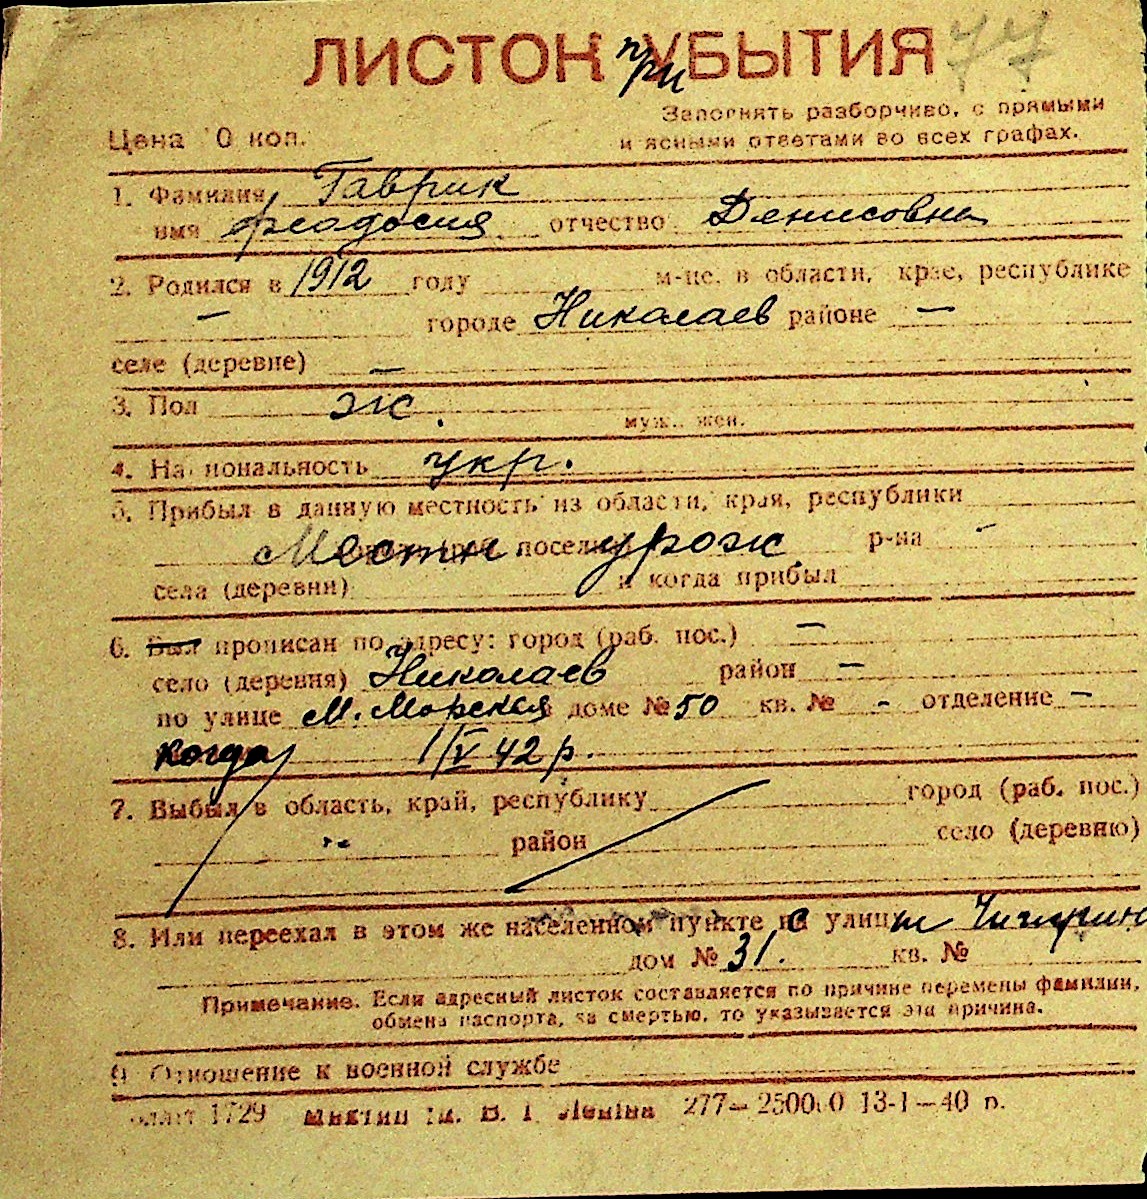 ЛИСТОК при УБЫТИЯ 77
Заполнять разборчиво, с прямыми
Цена 10 коп. и ясными ответами во всех графах.
1. Фамилия Гаврик
имя Феодосия отчество Денисовна
2. Родился в 1912 году м-це, в области, крае, республике
— городе Николаев районе —
селе (деревне) —
3. Пол ж. муж., жен.
4. Национальность укр.
5. Прибыл в данную местность из области, края, республики
Местн поселка урож р-на -
села (деревни) и когда прибыл
6. Был прописан по адресу: город (раб. пос.) —
село (деревня) Николаев район —
по улице М. Морская доме № 50 кв. № - отделение —
когда 1/V 42 р.
7. Выбыл в область, край, республику город (раб. пос.)
район село (деревню)
8. Или переехал в этом же населенном пункте с улицы Чигрин
дом № 31. кв. №
Примечание. Если адресный листок составляется по причине перемены фамилии,
обмена паспорта, за смертью, то указывается эта причина.
9. Отношение к военной службе
1729 им. В. І. Леніна 277—250000 13-I—40 р.